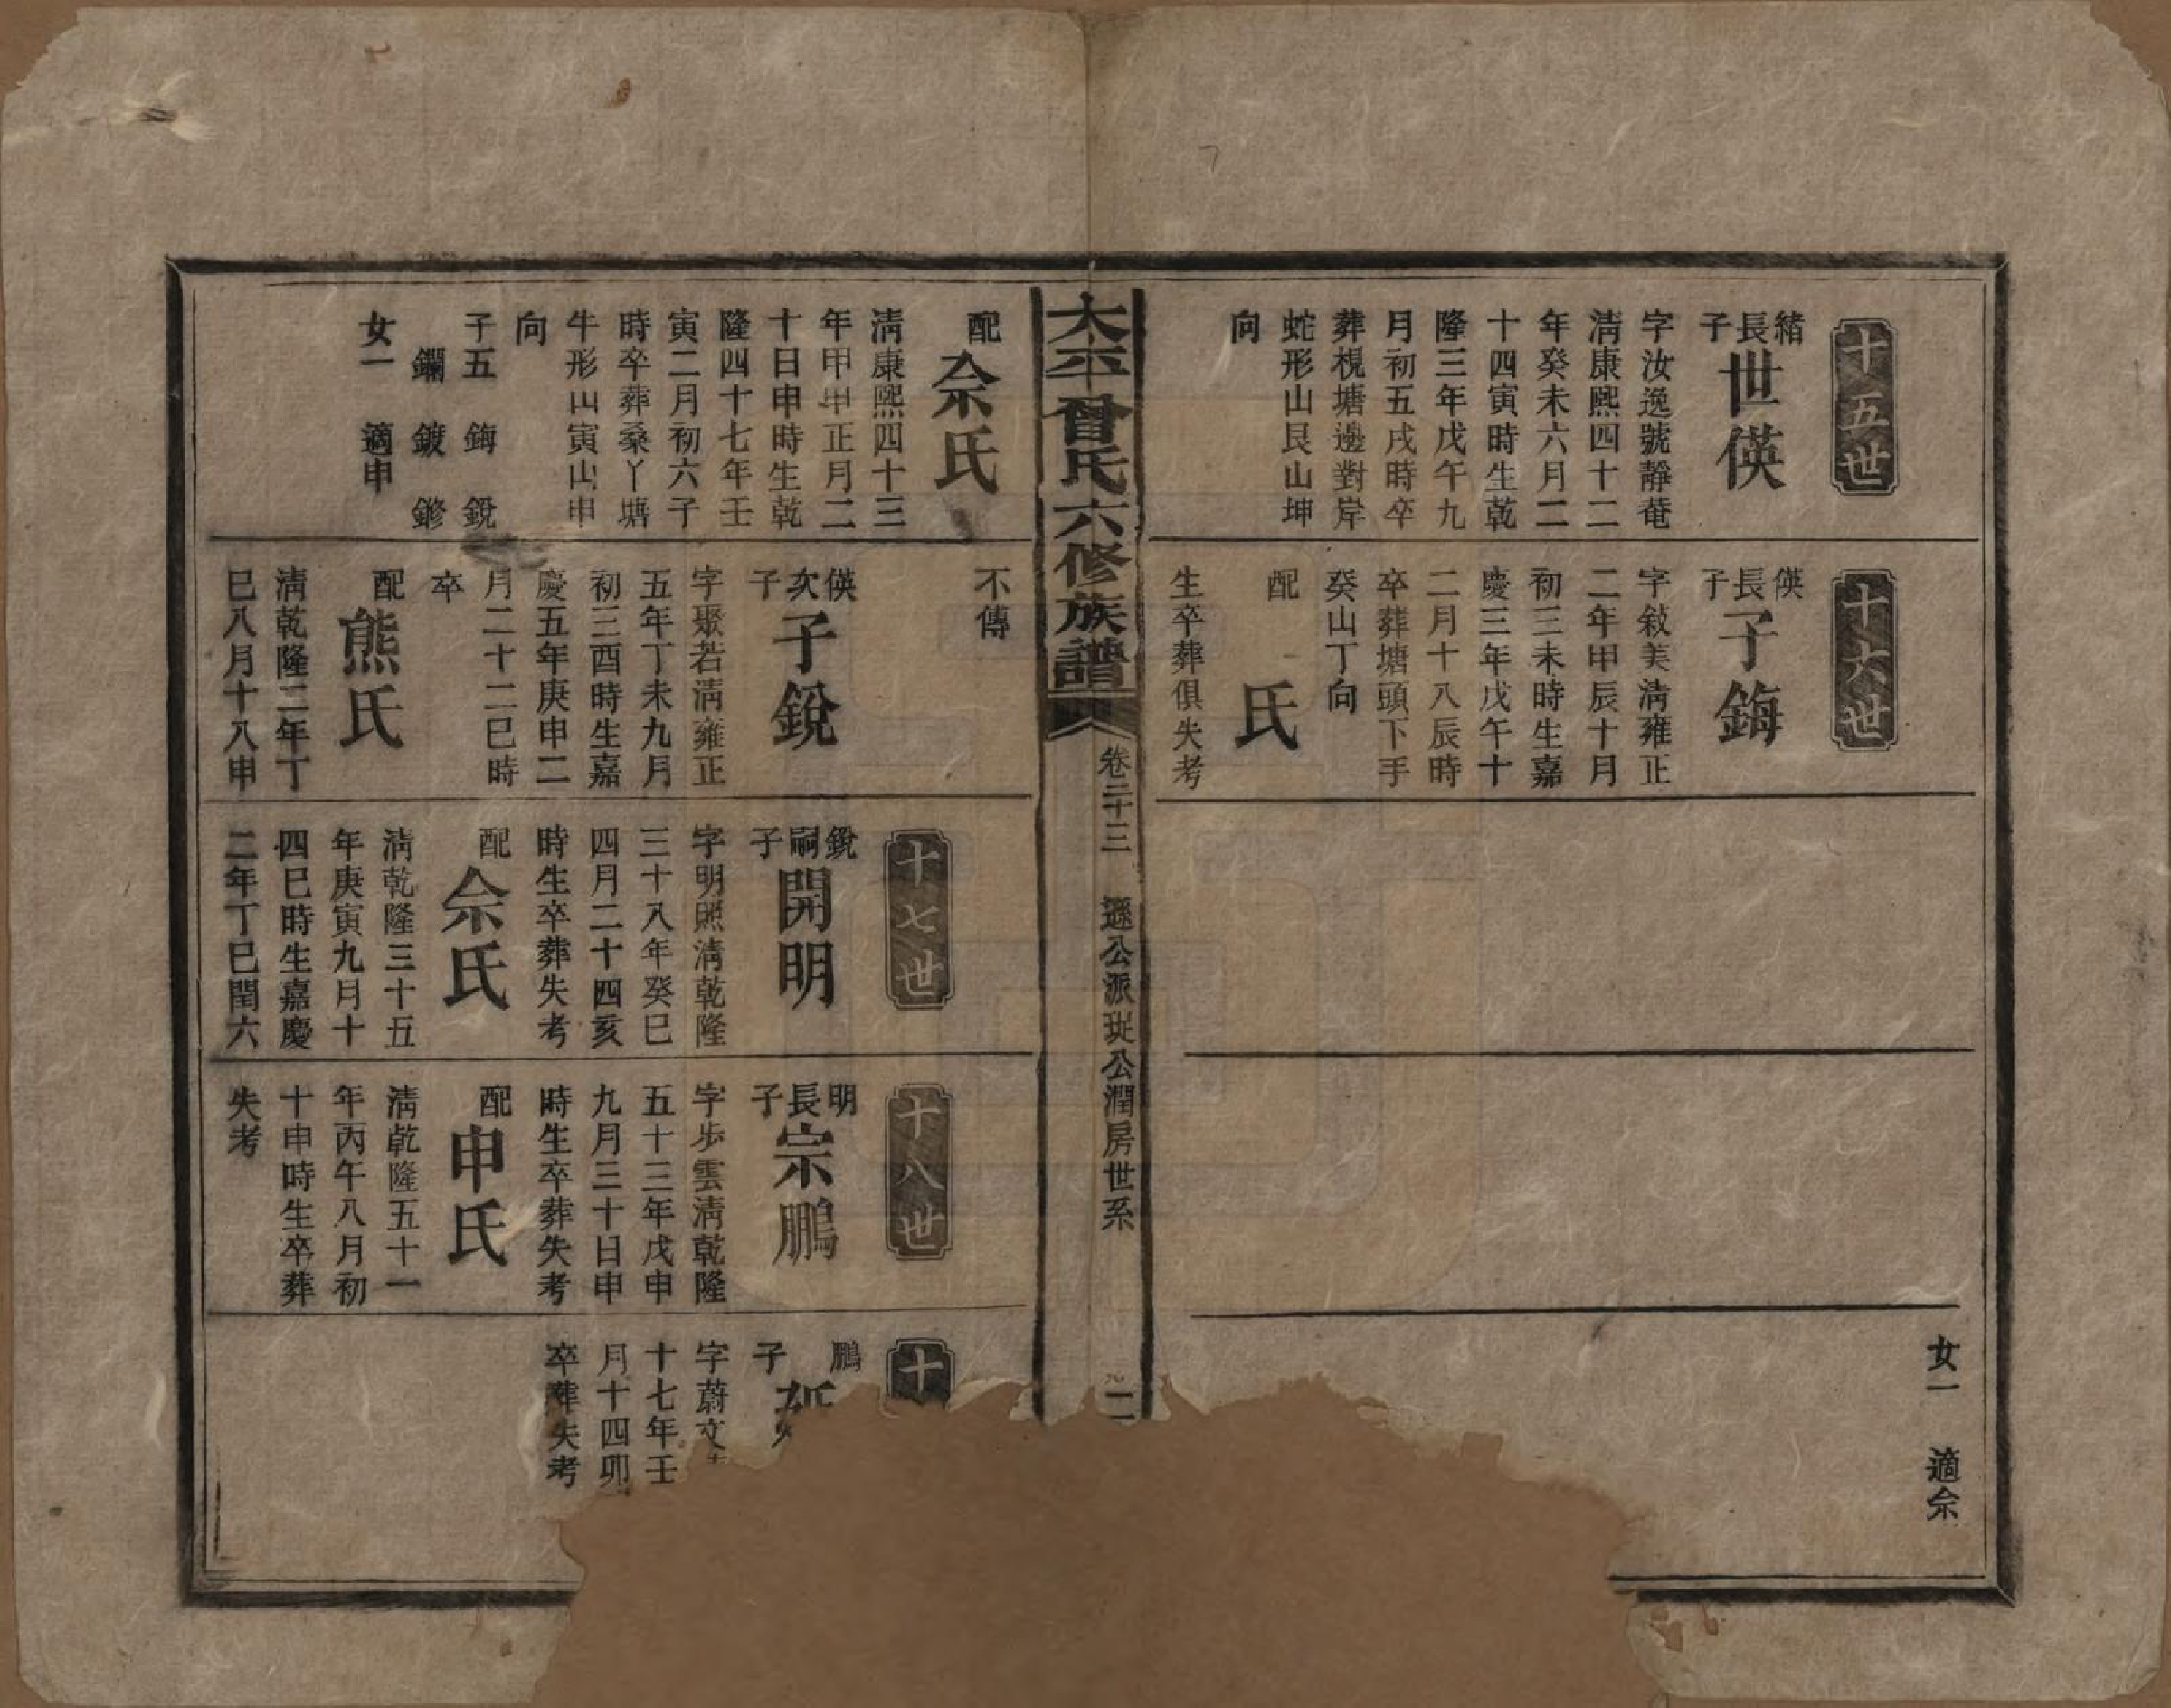 十五世
緒長子世偀
字汝逸號靜菴
淸康熙四十二
年癸未六月二
十四寅時生乾
隆三年戊午九
月初五戌時卒
葬梘塘邊對岸
蛇形山艮山坤
向
十六世
偀長子子鋂
字敍美淸雍正
二年甲辰十月
初三未時生嘉
慶三年戊午十
二月十八辰時
卒葬塘頭下手
癸山丁向
配 氏
生卒葬俱失考
女一 適佘
太平曾氏六修族譜
卷二十三 遜公派 公潤房世系
配佘氏
淸康熙四十三
年甲申正月二
十日申時生乾
隆四十七年壬
寅二月初六子
時卒葬桑丫塘
牛形山寅山申
向
子五 鋂 銳
鑭 鍍 鏒
女一 適申
不傳
偀次子子銳
字聚若淸雍正
五年丁未九月
初三酉時生嘉
慶五年庚申二
月二十二巳時
卒
配熊氏
淸乾隆二年丁
巳八月十八申
十七世
銳嗣子開明
字明照淸乾隆
三十八年癸巳
四月二十四亥
時生卒葬失考
配佘氏
淸乾隆三十五
年庚寅九月十
四巳時生嘉慶
二年丁巳閏六
十八世
明長子宗鵬
字步雲淸乾隆
五十三年戊申
九月三十日申
時生卒葬失考
配申氏
淸乾隆五十一
年丙午八月初
十申時生卒葬
失考
十
鵬子
字蔚文
十七年壬
月十四卯
卒葬失考